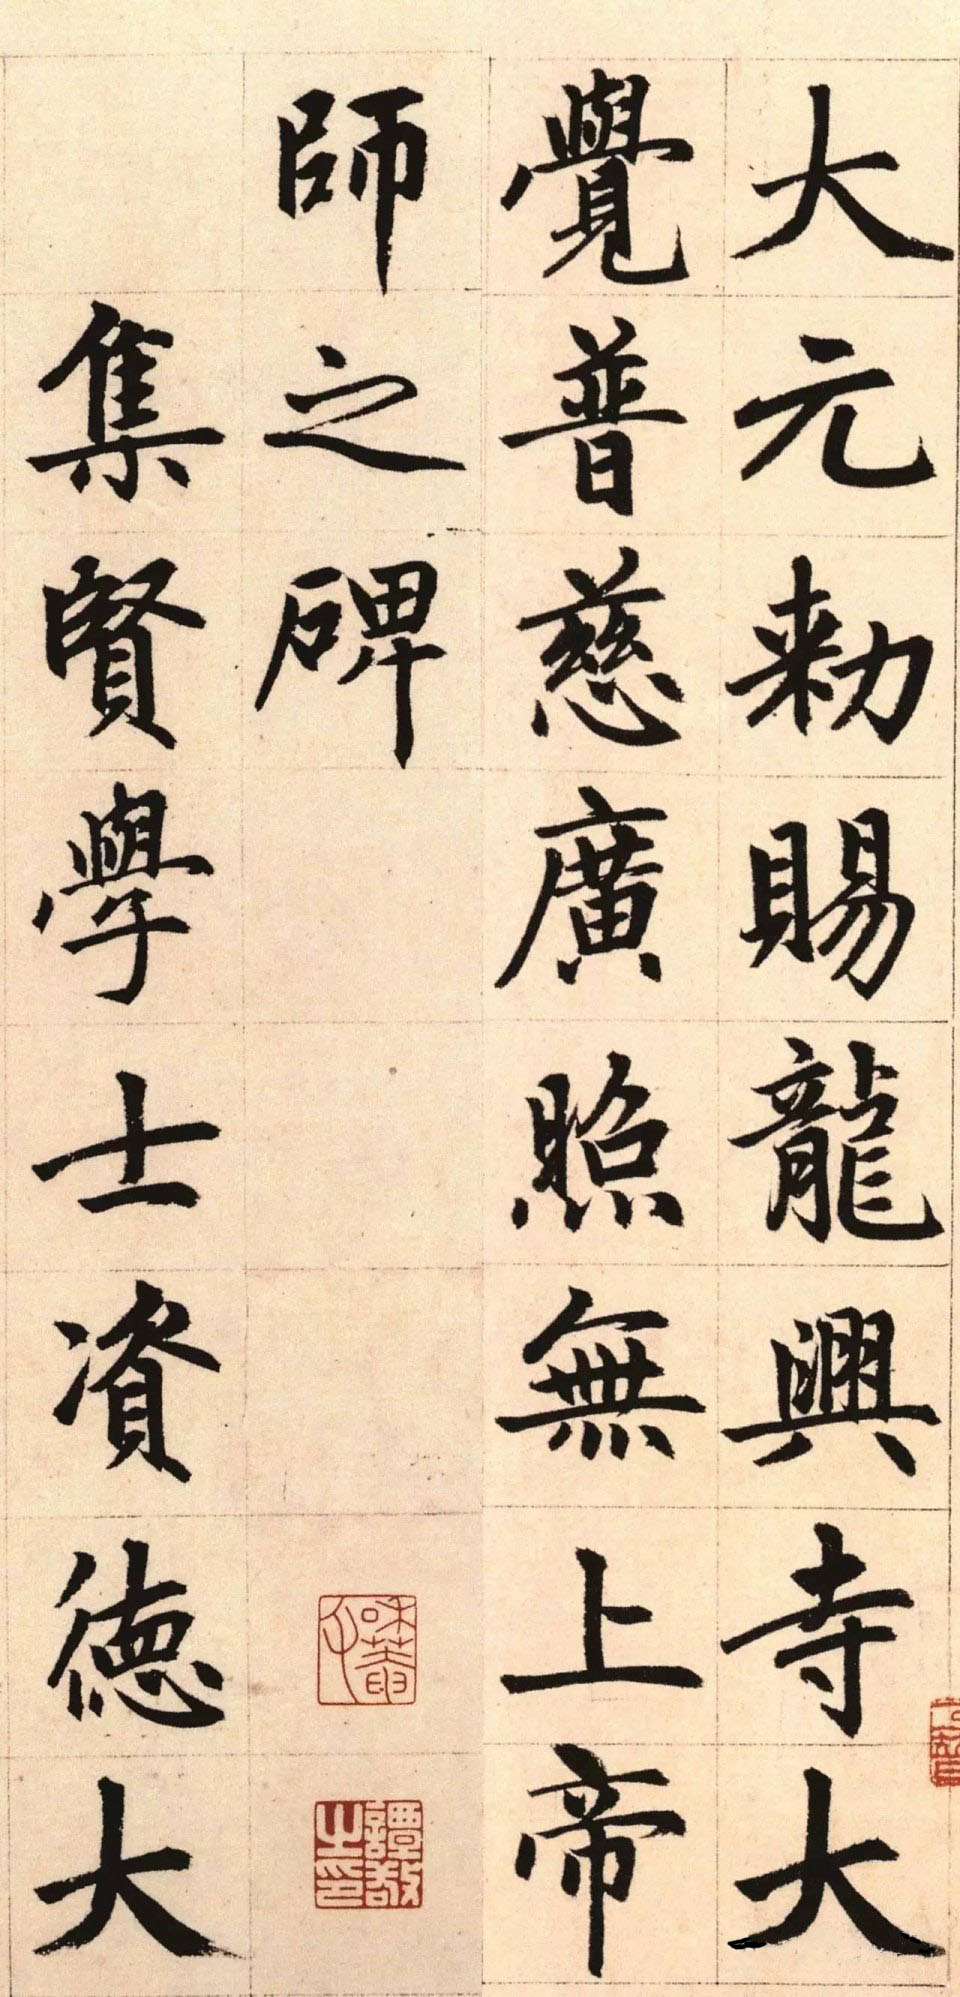 大元勅賜龍興寺大
覺普慈廣照無上帝
師之碑
集賢學士資德大
譚敬之印